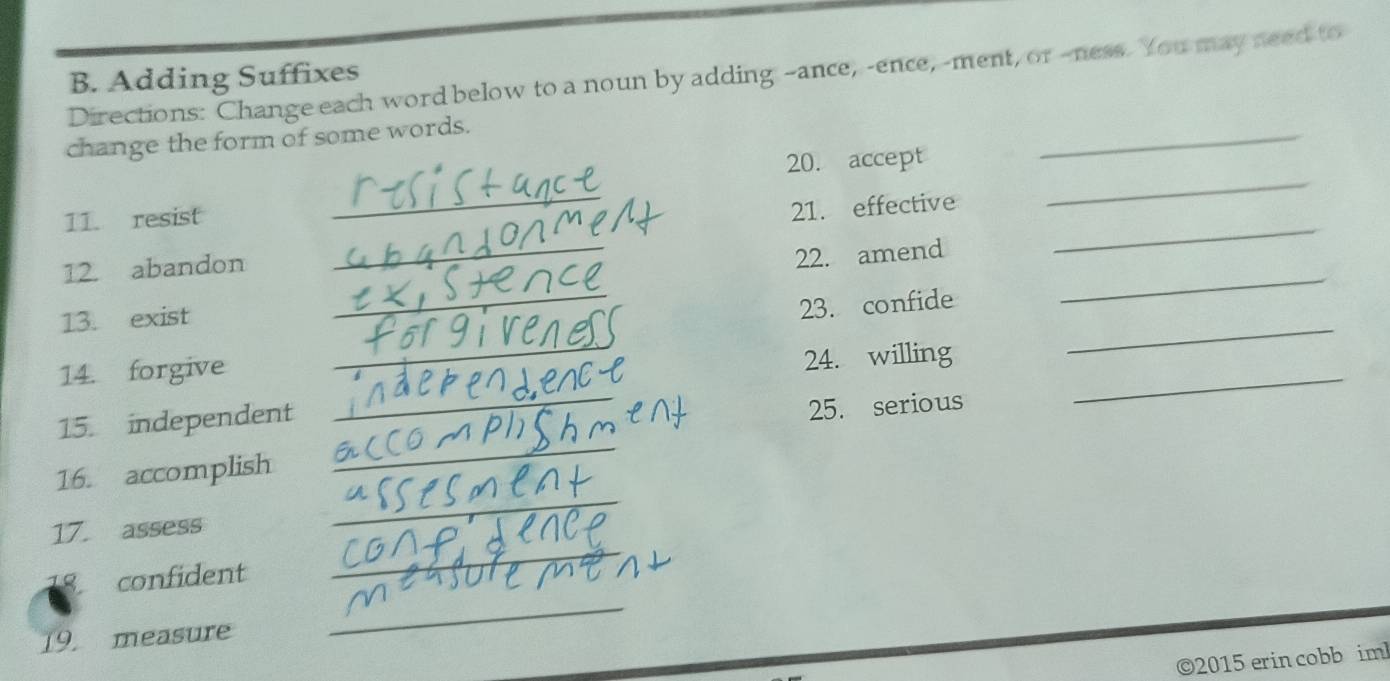 B. Adding Suffixes
Directions: Change each word below to a noun by adding -ance, -ence, -ment, or -ness. You may need to
change the form of some words.
11. resist resistance
12. abandon abandonment
13. exist existence
14. forgive forgiveness
15. independent independence
16. accomplish accomplishment
17. assess assesment
18. confident confidence
19. measure measurement
20. accept
21. effective
22. amend
23. confide
24. willing
25. serious
©2015 erin cobb